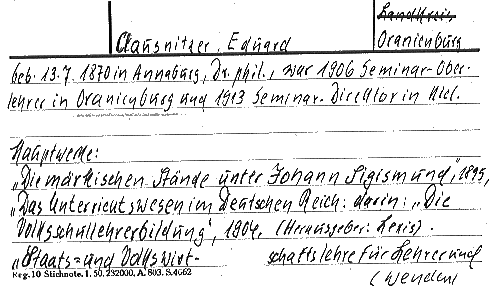 Landkreis
Clausnitzer, Eduard
Oranienburg
geb. 13.7. 1870 in Annaburg, Dr. phil., war 1906 Seminar-Ober-
lehrer in Oranienburg und 1913 Seminar-Direktor in Kiel.
Hauptwerke:
"Die märkischen Stände unter Johann Sigismund", 1895,
"Das Unterrichtswesen im Deutschen Reich: darin: "Die
Volksschullehrerbildung", 1904. (Herausgeber: Lexis).
"Staats= und Volkswirt- schaftslehre für Lehrer und
Reg. 10 Stichnote. 1. 50. 232000, A. 803. S. 4662
(wenden)